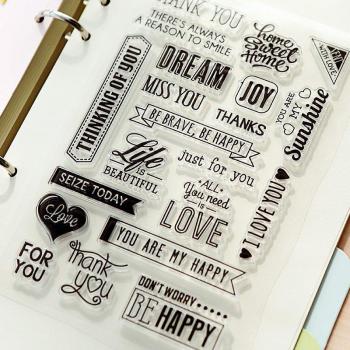 THANK YOU
THERE'S ALWAYS
A REASON TO SMILE
home
Sweet
Home
WITH LOVE
THINKING OF YOU
DREAM
JOY
MISS YOU
THANKS
YOU ARE
MY
Sunshine
BE BRAVE, BE HAPPY
Life
is
BEAUTIFUL
just for you
SEIZE TODAY
"ALL"
You need
is
LOVE
I LOVE YOU
Love
YOU ARE MY HAPPY
FOR
YOU
thank
you
DON'T WORRY
BE HAPPY